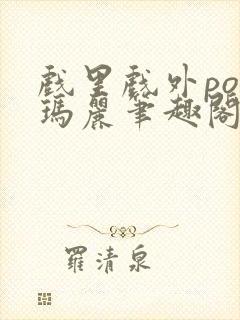 戲里戲外po
瑪麗筆趣閣
羅清泉